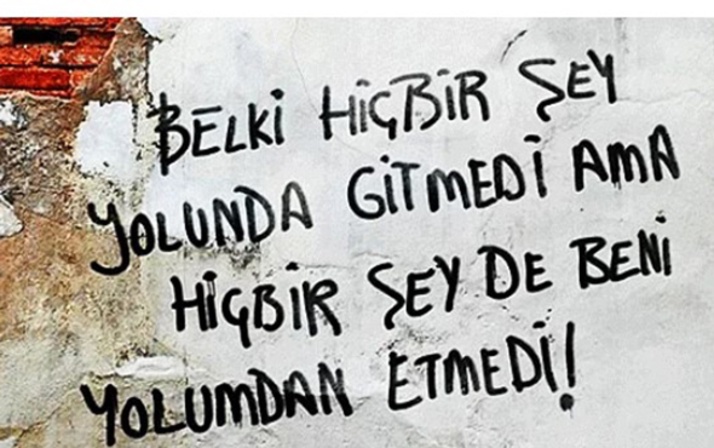 BELKİ HİÇBİR ŞEY
YOLUNDA GİTMEDİ AMA
HİÇBİR ŞEY DE BENİ
YOLUMDAN ETMEDİ!